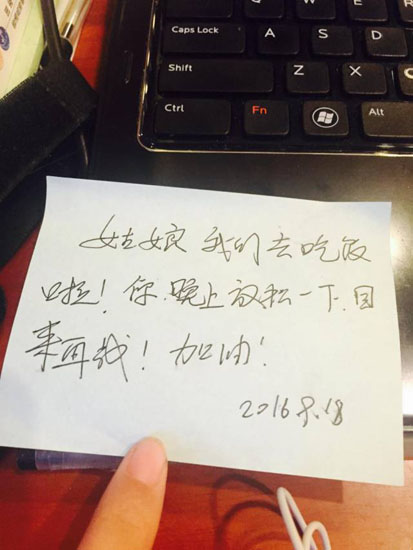 Caps Lock A S D
Shift Z X
Ctrl Fn Alt
姑娘 我们去吃饭
啦！你晚上放松一下.回
来再战！加油！
2016 8.18